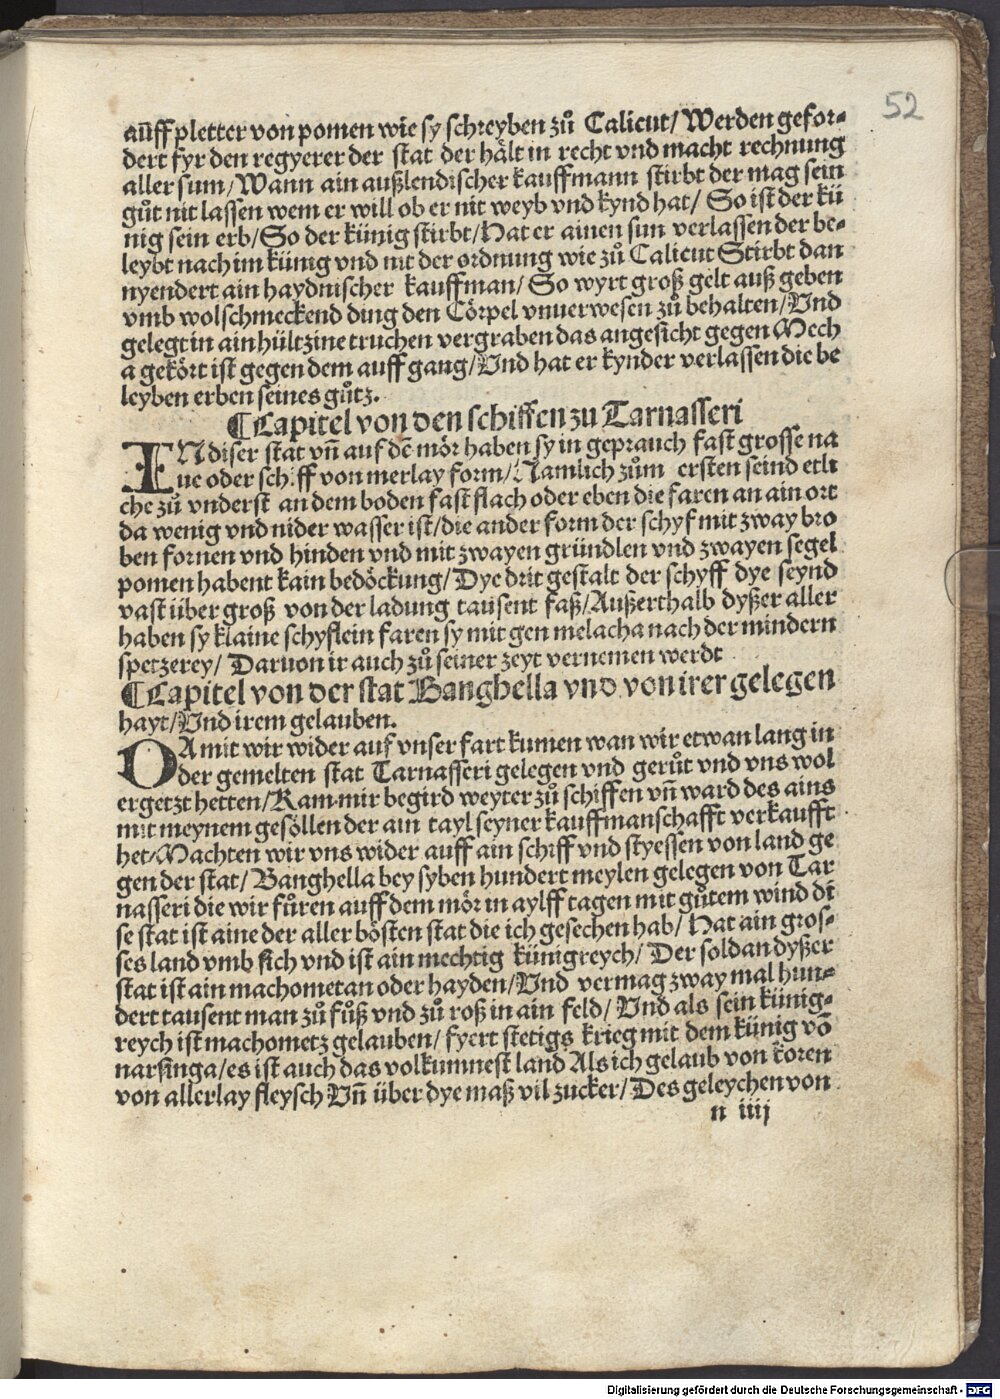 52
auff pletter von pomen wie sy schreyben zů Calicut/ Werden gefor-
dert fyr den regyerer der stat der hält in recht vnd macht rechnung
aller sum/ Wann ain außlendischer kauffmann stirbt der mag sein
gůt nit lassen wem er will ob er nit weyb vnd kynd hat/ So ist der kü
nig sein erb/ So der künig stirbt/ Hat er ainen sun verlassen der be-
leybt nach im künig vnd nit der ordnung wie zů Calicut Stirbt dan
nyendert ain haydnischer kauffman/ So wyrt groß gelt auß geben
vmb wolschmeckend ding den Cörpel vnuerwesen zů behalten/ Vnd
gelegt in ain hültzine truchen vergraben das angesicht gegen Mech
a gekört ist gegen dem auff gang/ Vnd hat er kynder verlassen die be
leyben erben seines gůtz.
¶Capitel von den schiffen zu Tarnasseri
INdiser stat vñ auf dē mör haben sy in geprauch fast grosse na
ue oder schiff von merlay form/ Namlich zům ersten seind etli
che zů vnderst an dem boden fast flach oder eben die faren an ain ort
da wenig vnd nider wasser ist/ die ander form der schyf mit zway bro
ben fornen vnd hinden vnd mit zwayen gründlen vnd zwayen segel
pomen habent kain bedöckung/ Dye drit gestalt der schyff dye seynd
vast über groß von der ladung tausent faß/ Außerthalb dyßer aller
haben sy klaine schyflein faren sy mit gen melacha nach der mindern
spetzerey/ Daruon ir auch zů seiner zeyt vernemen werdt
¶Capitel von der stat Banghella vnd von irer gelegen
hayt/ Vnd irem gelauben.
DAmit wir wider auf vnser fart kumen wan wir etwan lang in
der gemelten stat Tarnasseri gelegen vnd gerůt vnd vns wol
ergetzt hetten/ Kam mir begird weyter zů schiffen vñ ward des ains
mit meynem gesöllen der ain tayl seyner kauffmanschafft verkaufft
het/ Machten wir vns wider auff ain schiff vnd styessen von land ge
gen der stat/ Banghella bey syben hundert meylen gelegen von Tar
nasseri die wir fůren auff dem mör in aylff tagen mit gůtem wind di
se stat ist aine der aller bösten stat die ich gesechen hab/ Hat ain gros-
ses land vmb sich vnd ist ain mechtig künigreych/ Der soldan dyßer
stat ist ain machometan oder hayden/ Vnd vermag zway mal hun-
dert tausent man zů fůß vnd zů roß in ain feld/ Vnd als sein künig-
reych ist machometz gelauben/ fyert stetigs krieg mit dem künig vō
narsinga/ es ist auch das volkumnest land Als ich gelaub von koren
von allerlay fleysch Vñ über dye maß vil zucker/ Des geleychen von
n iiij
Digitalisierung gefördert durch die Deutsche Forschungsgemeinschaft - DFG